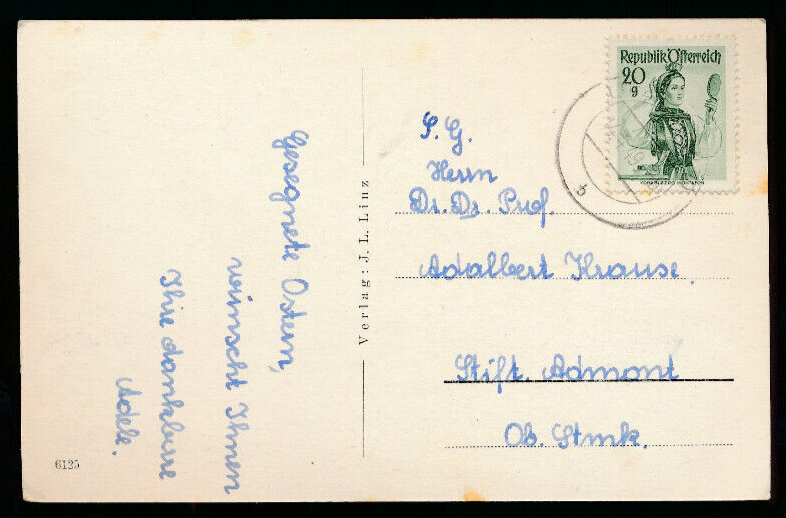 Gesegnete Ostern,
wünscht Ihnen
Ihre dankbare
Adele.
6125
Verlag: J. L. Linz
Republik Österreich
20
g
VORARLBERG MONTAFON
S. G.
Herrn
Dr. Dr. Prof.
Adalbert Krause.
Stift. Admont
Ob. Stmk.